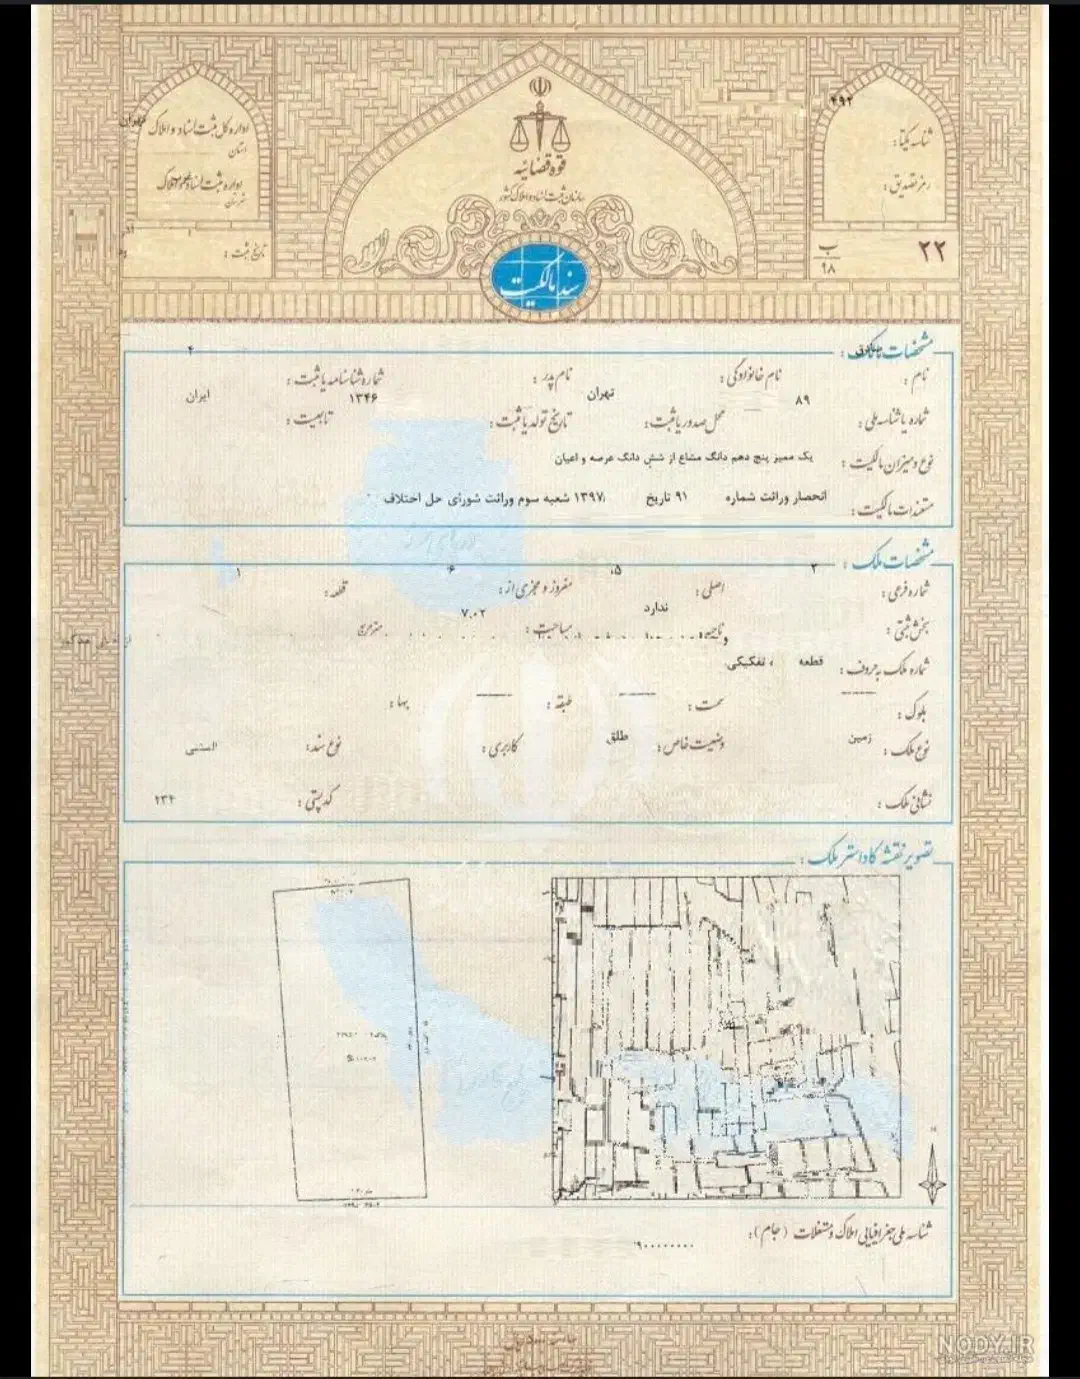 ۴۹۲
شناسه یکتا :
رمز تصدیق :
۲۲
ب
۹۸
قوه قضائیه
سازمان ثبت اسناد و املاک کشور
سند مالکیت
تهران
اداره کل ثبت اسناد و املاک
استان
اداره ثبت اسناد و املاک
شهرستان
تاریخ ثبت :
مشخصات مالک :
نام :
نام خانوادگی :
نام پدر :
شماره شناسنامه یا ثبت :
۴
شماره یا شناسه ملی :
۸۹
محل صدور یا ثبت :
تهران
تاریخ تولد یا ثبت :
۱۳۴۶
تابعیت :
ایران
نوع و میزان مالکیت :
یک ممیز پنج دهم دانگ مشاع از شش دانگ عرصه و اعیان
مستندات مالکیت :
انحصار وراثت شماره ۹۱ تاریخ ۱۳۹۷/ شعبه سوم وراثت شورای حل اختلاف
مشخصات ملک :
شماره فرعی :
۲
اصلی :
۵
مفروز و مجزی از :
۶
قطعه :
۱
بخش ثبتی :
ناحیه
ندارد
مساحت :
۷.۰۲
مترمربع
شماره ملک به حروف :
قطعه ، تفکیکی
بلوک :
سمت :
طبقه :
بهاء :
نوع ملک :
زمین
وضعیت خاص :
طلق
کاربری :
نوع سند :
المثنی
نشانی ملک :
کد پستی :
۲۳۴
تصویر نقشه کاداستر ملک :
شناسه ملی جغرافیایی املاک و مستغلات (جام) :
NODY.IR